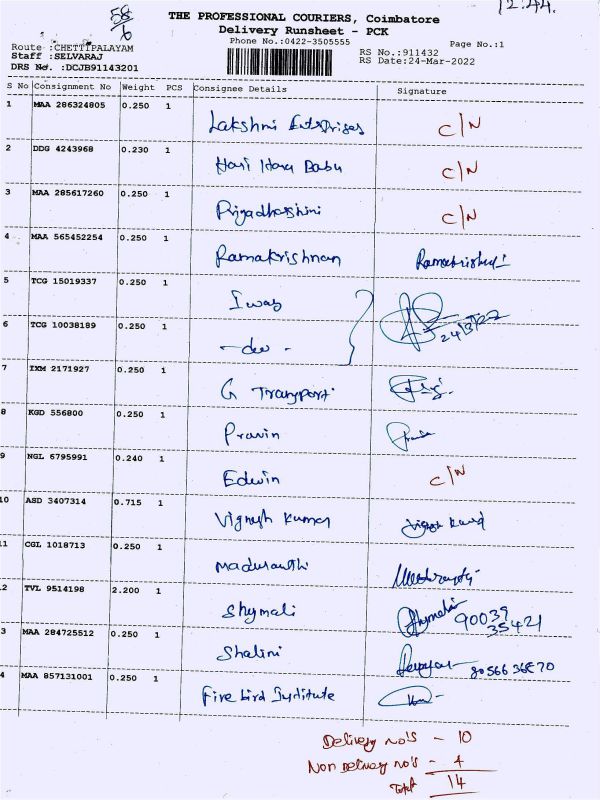 58
6
12:44
THE PROFESSIONAL COURIERS, Coimbatore
Delivery Runsheet - PCK
Phone No.:0422-3505555
Page No.:1
Route :CHETTIPALAYAM
Staff :SELVARAJ
DRS No. :DCJB91143201
RS No.:911432
RS Date:24-Mar-2022
S No Consignment No Weight PCS Consignee Details Signature
1 MAA 286324805 0.250 1 Lakshmi Enterprises C/N
2 DDG 4243968 0.230 1 Hari Hara Babu C/N
3 MAA 285617260 0.250 1 Priyadharshini C/N
4 MAA 565452254 0.250 1 Ramakrishnan
5 TCG 15019337 0.250 1 Iway
6 TCG 10038189 0.250 1 - do - 24/3/22
7 IXM 2171927 0.250 1 G Transport
8 KGD 556800 0.250 1 Pravin
9 NGL 6795991 0.240 1 Edwin C/N
10 ASD 3407314 0.715 1 Vignesh Kumar
11 CGL 1018713 0.250 1
2 TVL 9514198 2.200 1 Shymali 90039 35421
3 MAA 284725512 0.250 1 Shalini
4 MAA 857131001 0.250 1 Fire bird Institute
Delivery no's - 10
Non Delivery no's - 4
Total 14